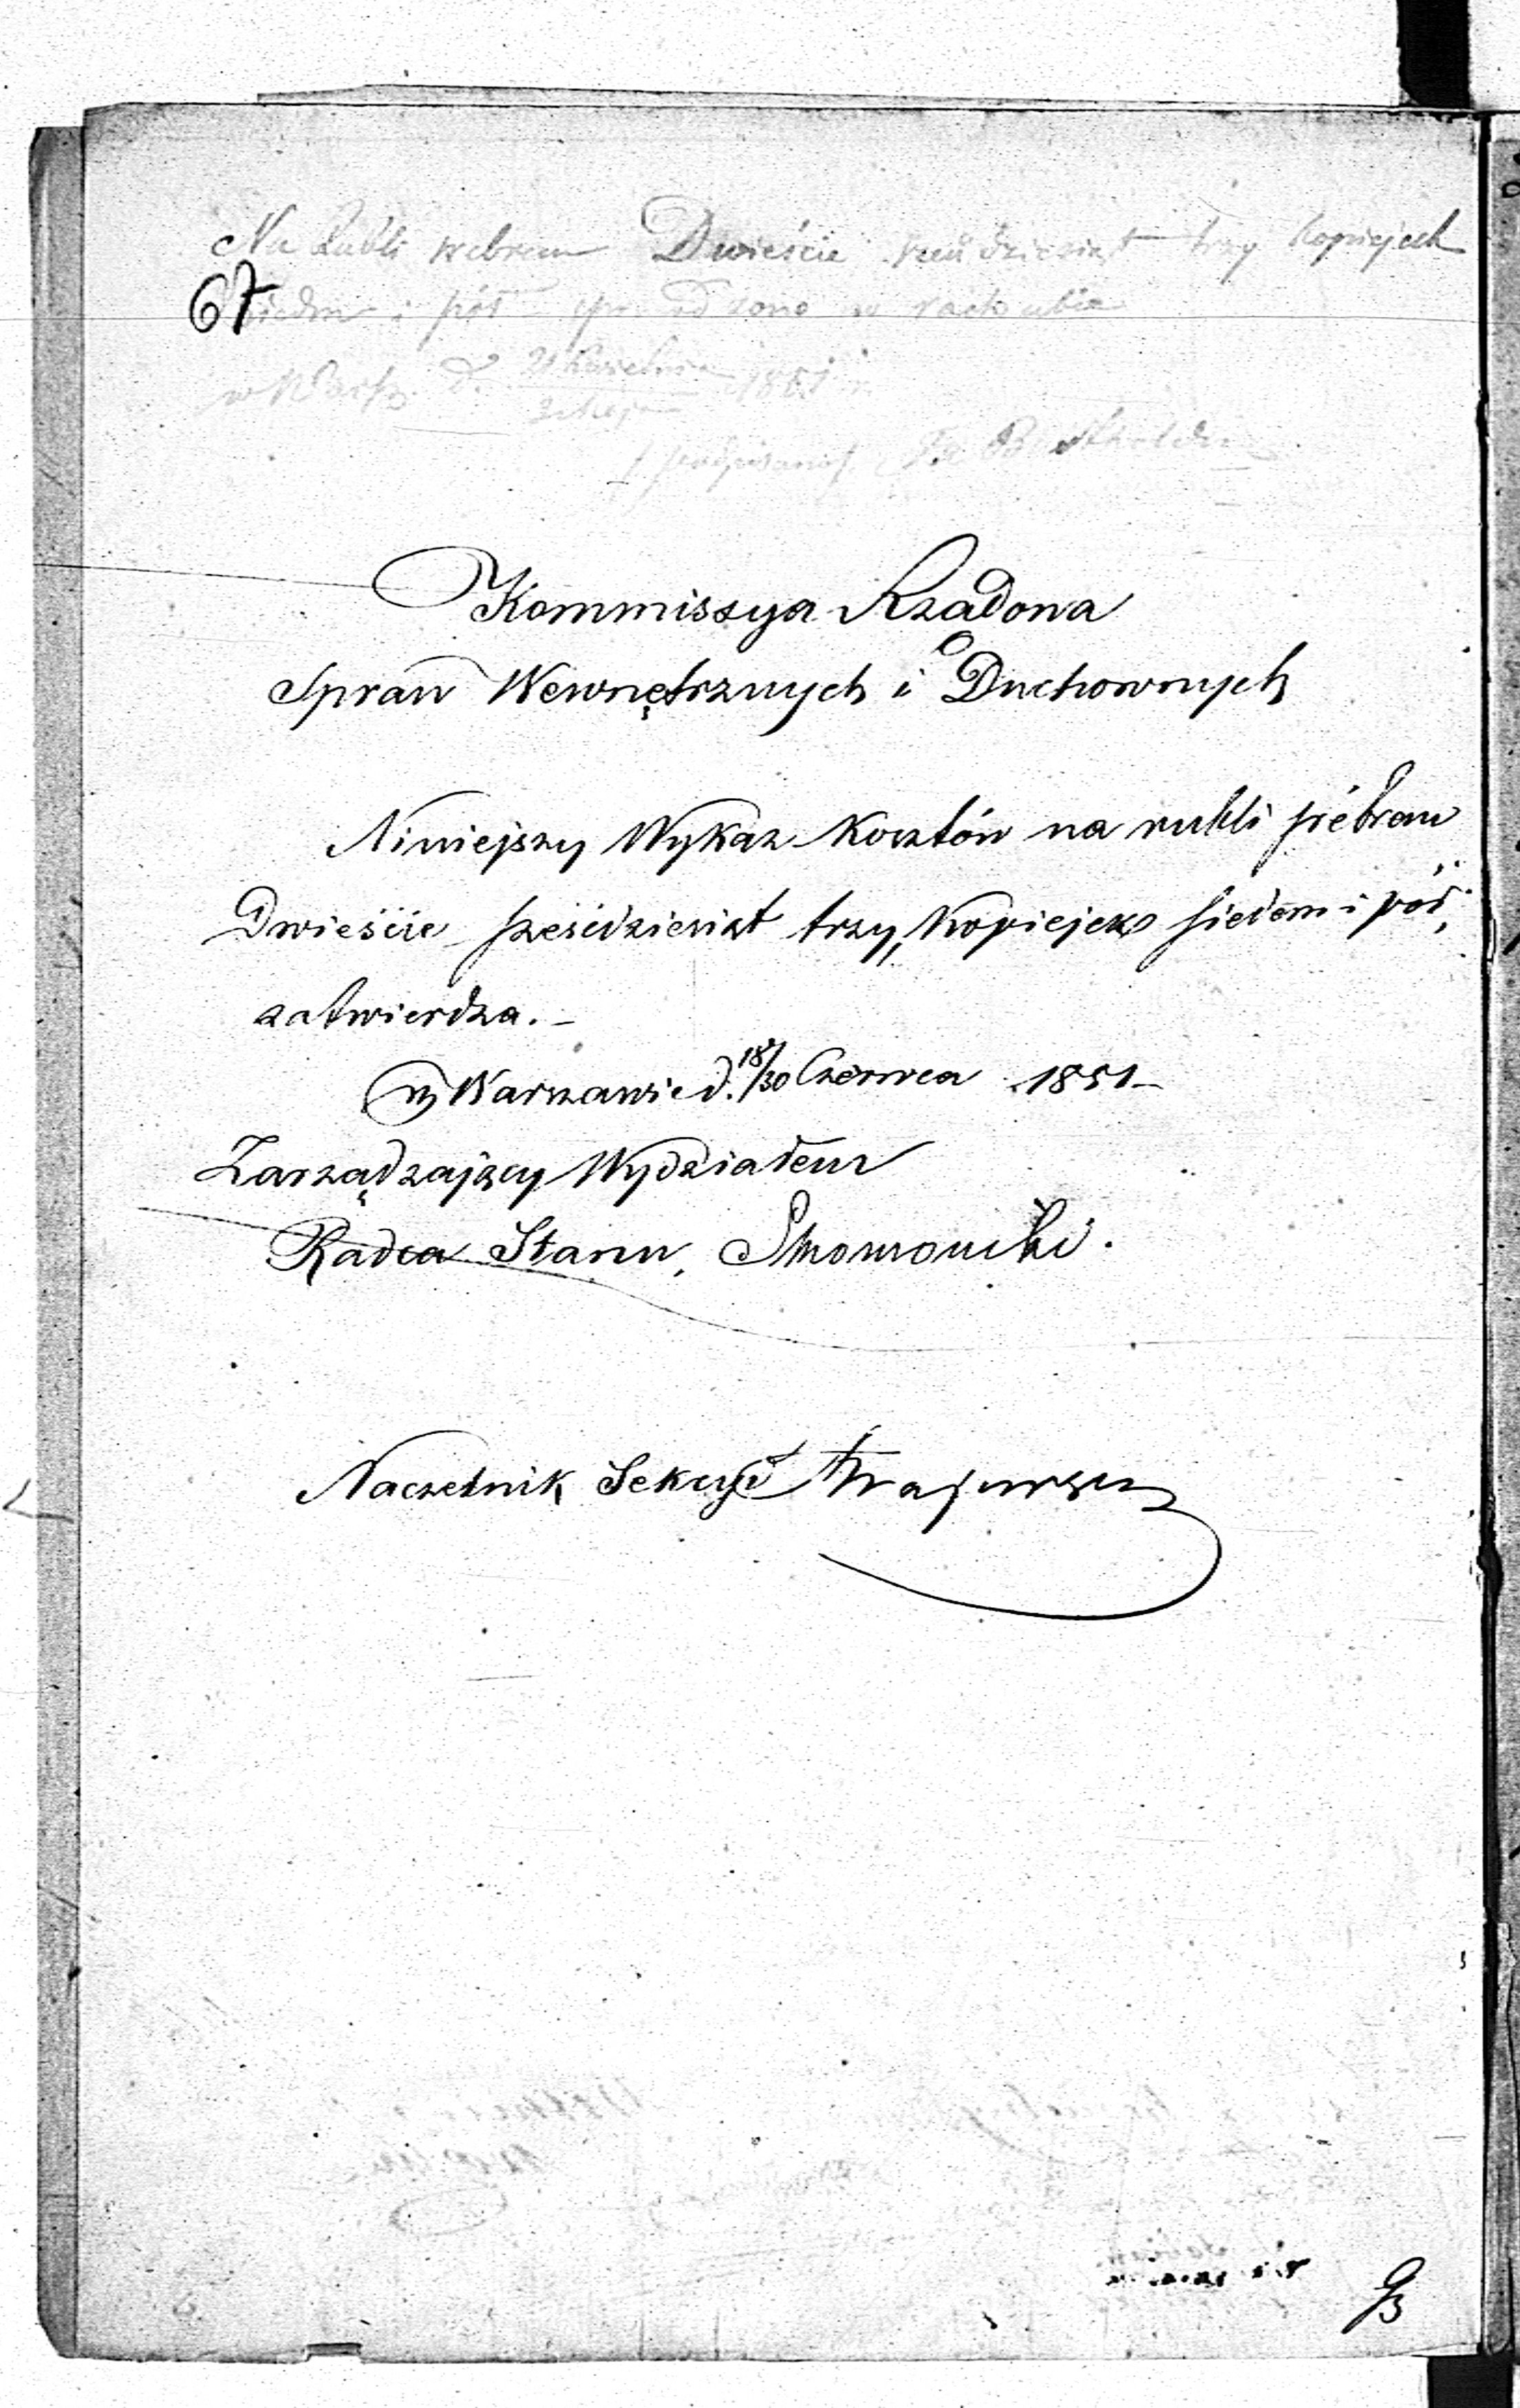 Na Rubli srebrem Dwieście sześćdziesiąt trzy kopiejek
67
siedm i pół sprawdzono w rachubie
w Warsz. d. 21 Kwietnia / 3 Maja 1851 r.
/podpisano/
Kommissya Rządowa
Spraw Wewnętrznych i Duchownych
Niniejszy Wykaz Kosztów na rubli srébrem
Dwieście sześćdziesiąt trzy, Kopiejek siedem i pół,
zatwierdza.-
w Warszawie d. 18/30 Czerwca 1851-
Zarządzający Wydziałem
Radca Stanu,
Naczelnik Sekcyi